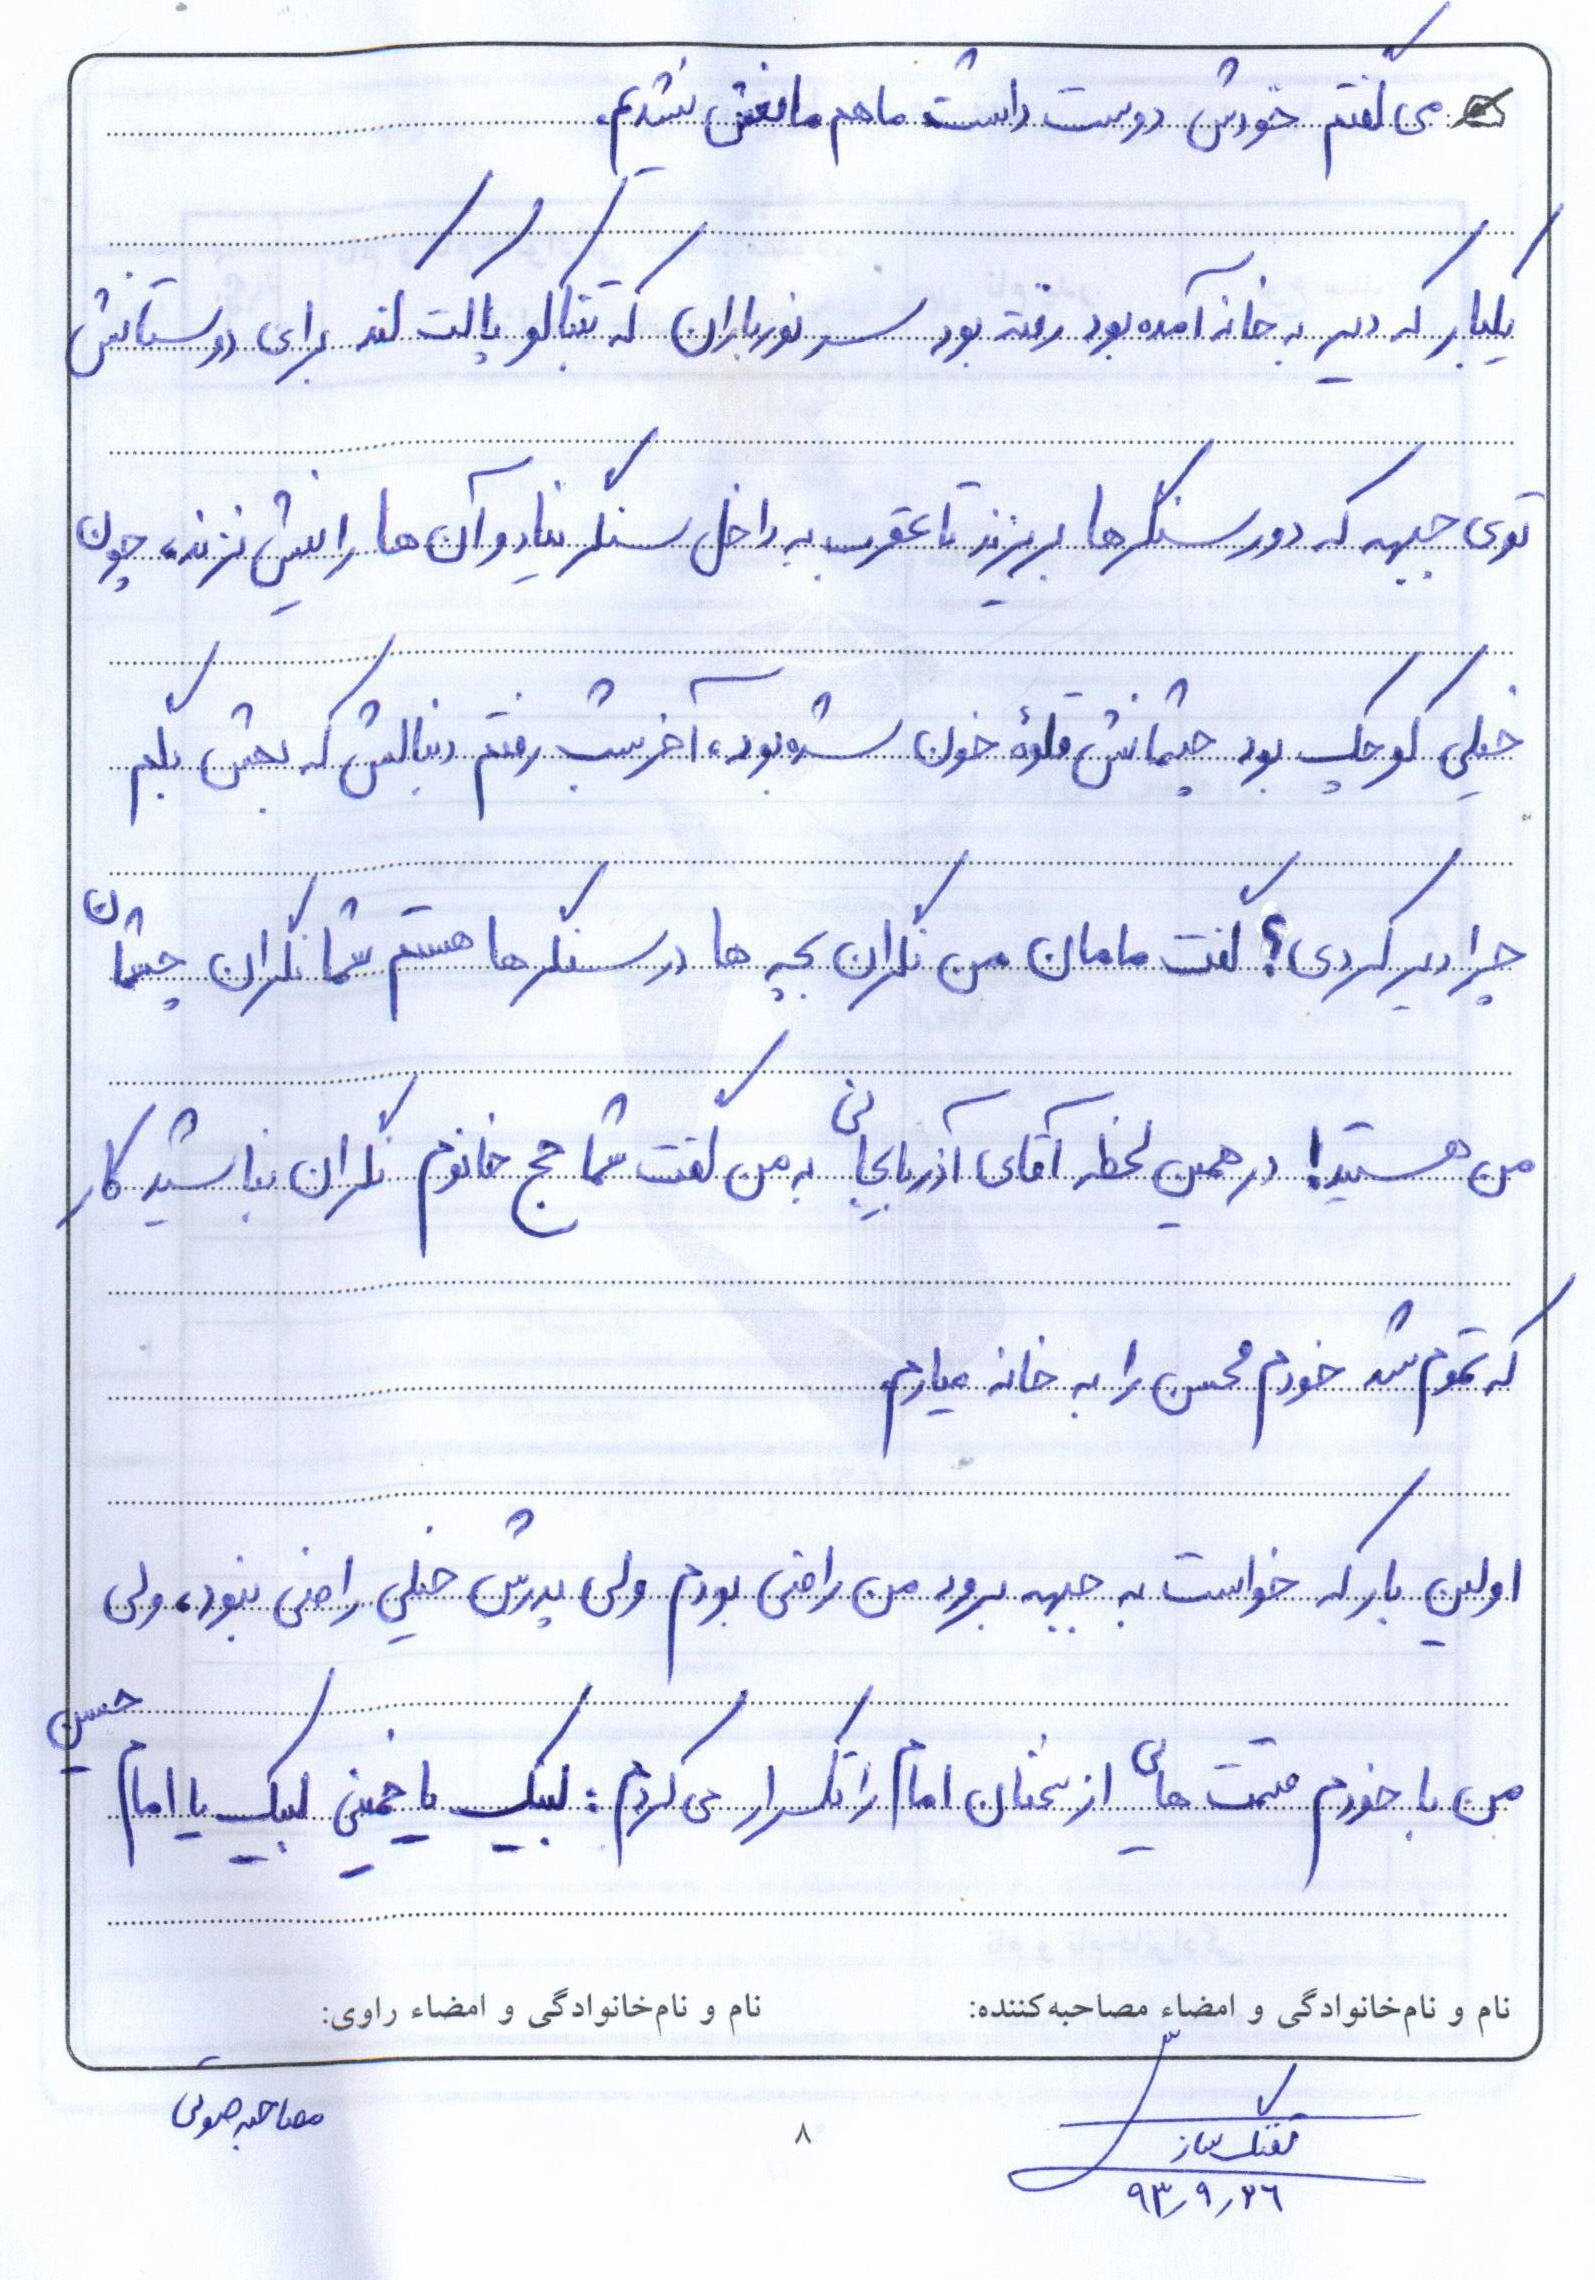 می گفتم خودش دوست داشت ما هم مانعش نشدیم.
یکبار که دیر به خانه آمده بود رفته بود سر نورباران که تنباکو پاکت کند برای دوستانش
توی جبهه که دور سنگرها بریزند تا عقرب به داخل سنگر نیاد و آن ها را نیش نزند، چون
خیلی کوچک بود چشمانش قلوهٔ خون شده بود، آخر شب رفتم دنبالش که بهش بگم
چرا دیر کردی؟ گفت مامان من نگران بچه ها در سنگرها هستم شما نگران چشمان
من هستید! در همین لحظه آقای آذربایجانی به من گفت شما حج خانوم نگران نباشید کار
که تموم شد خودم محسن را به خانه میارم.
اولین بار که خواست به جبهه برود من راضی بودم ولی پدرش خیلی راضی نبود، ولی
من با خودم قسمت هایی از سخنان امام را تکرار می کردم: لبیک یا خمینی لبیک یا امام حسین
نام و نام‌خانوادگی و امضاء مصاحبه‌کننده: نام و نام‌خانوادگی و امضاء راوی:
تفنگ ساز
۹۳/۹/۲۶
مصاحبه صوتی
۸